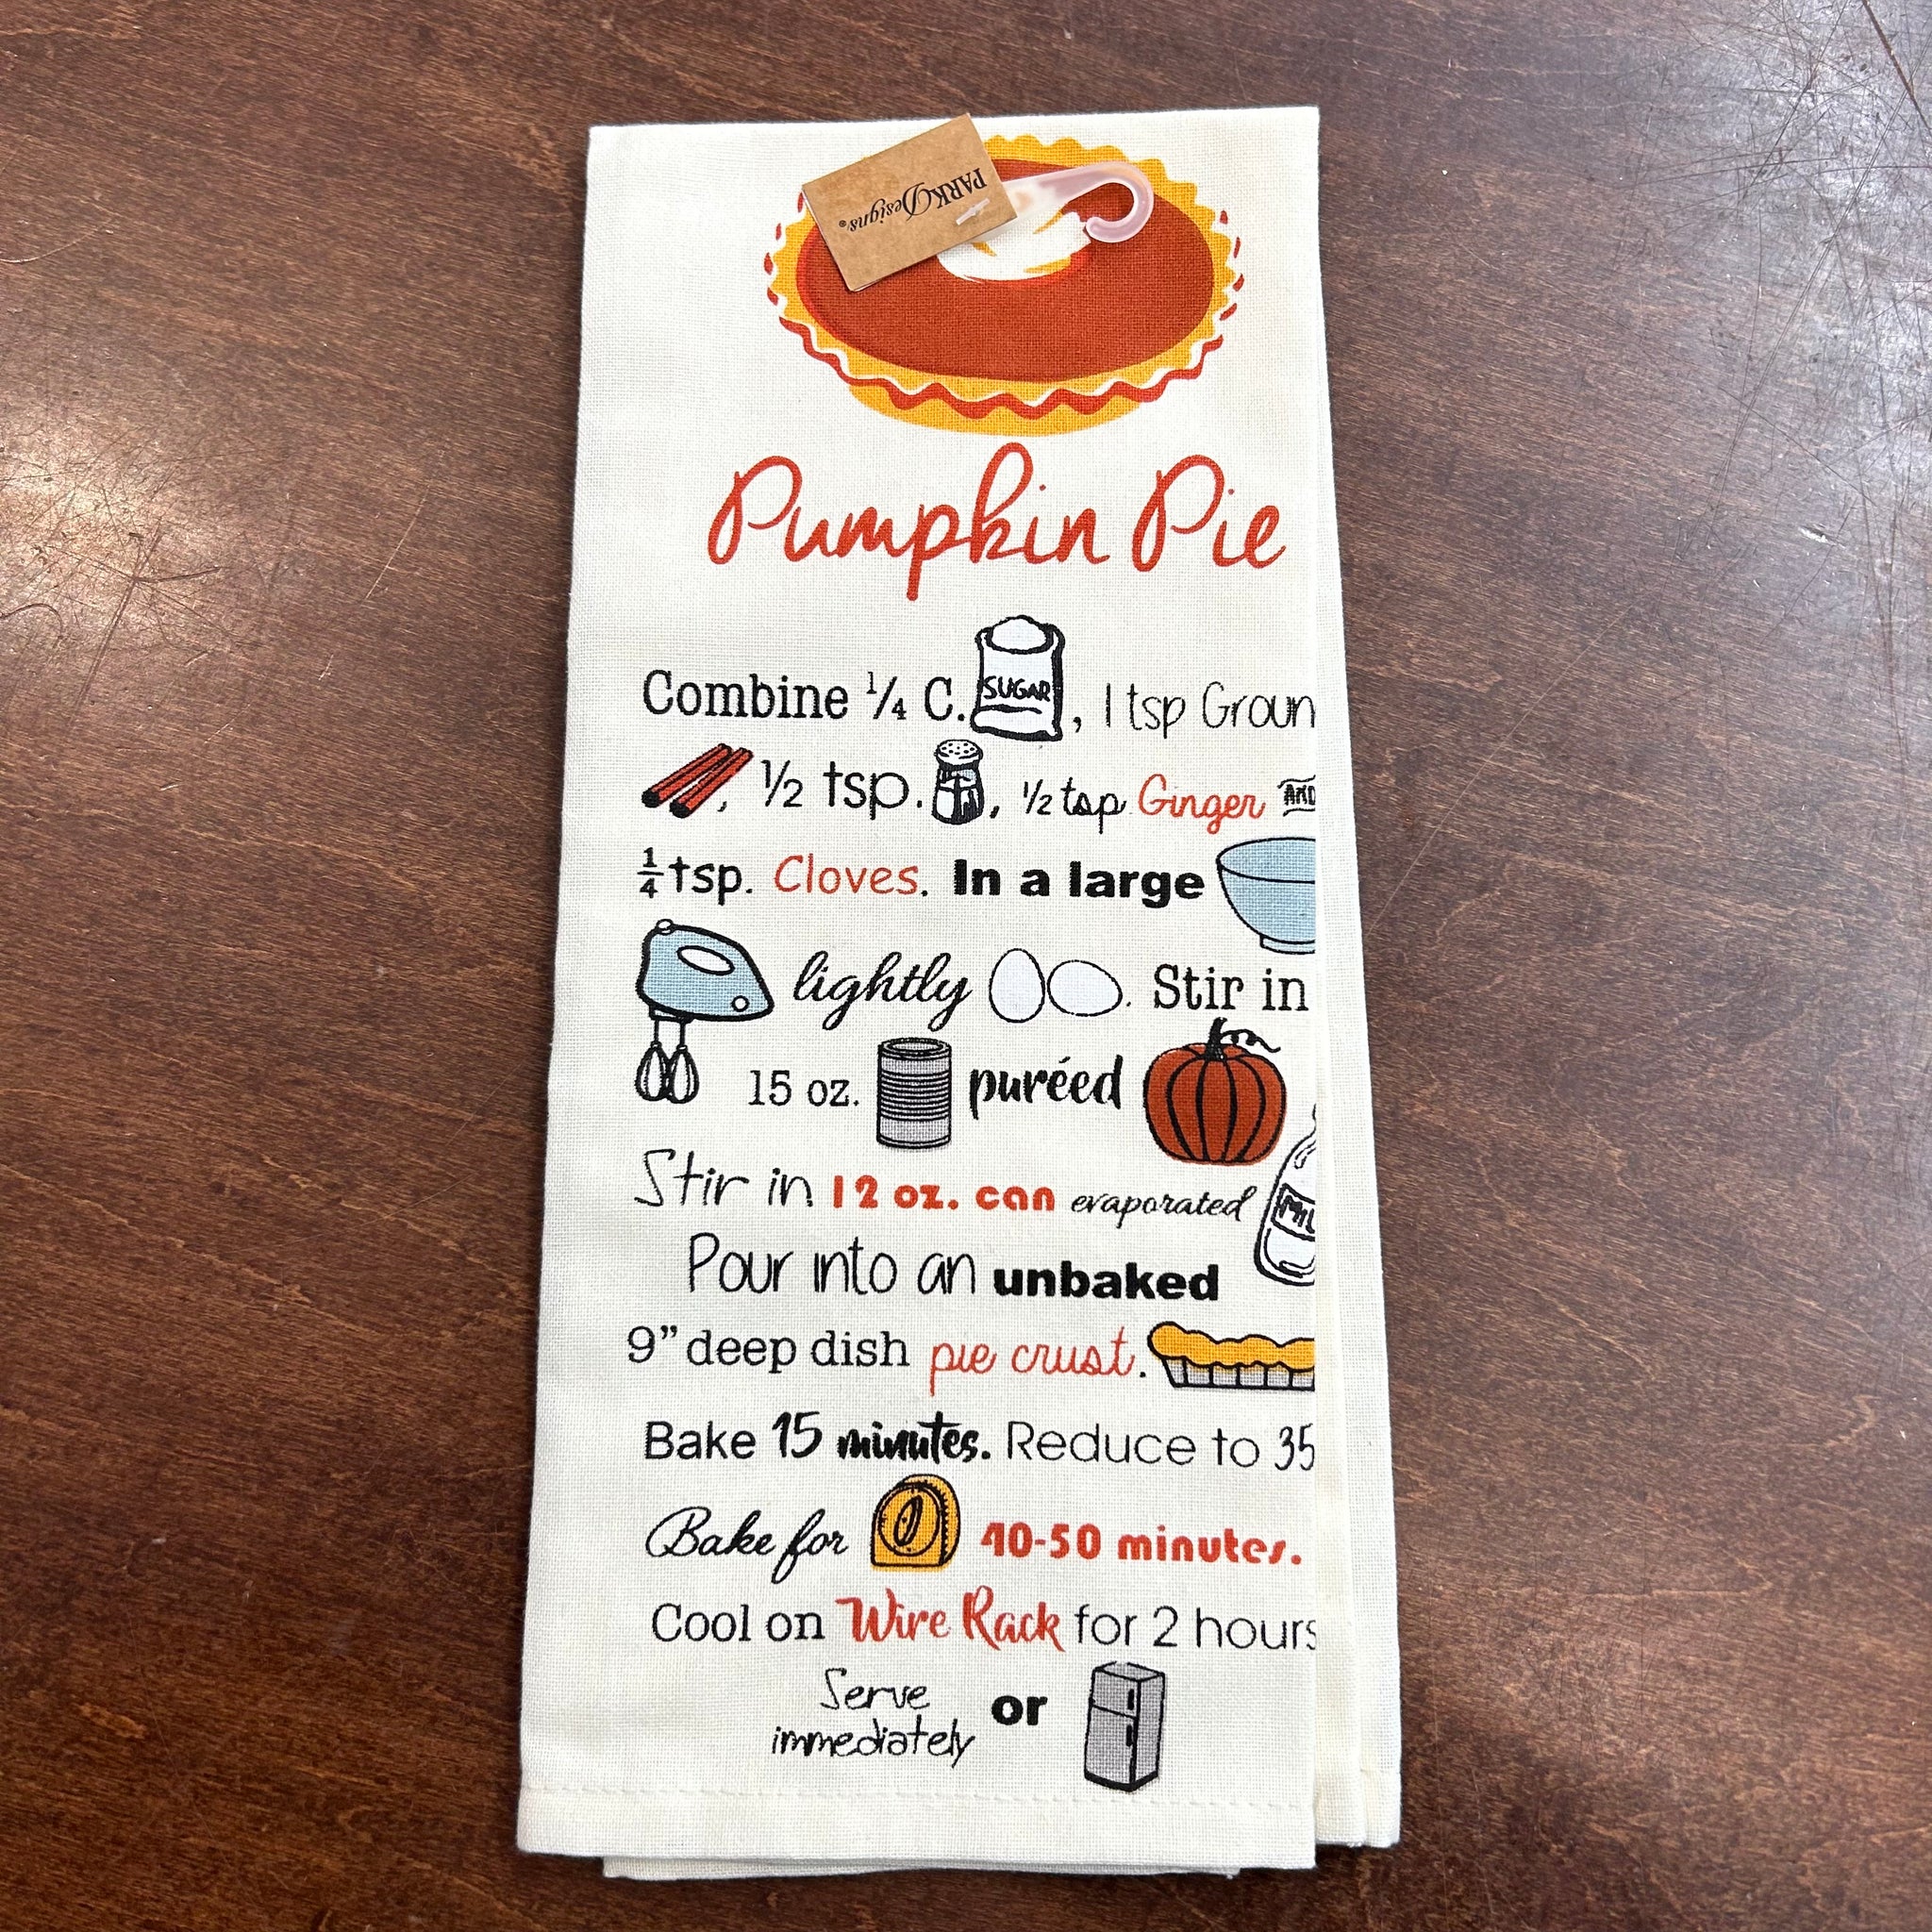 PARK Designs®
Pumpkin Pie
Combine ¼ C. SUGAR, 1 tsp Groun
, ½ tsp. , ½ tsp Ginger AND
¼ tsp. Cloves. In a large
lightly . Stir in
15 oz. puréed
Stir in 12 oz. can evaporated MIL
Pour into an unbaked
9” deep dish pie crust.
Bake 15 minutes. Reduce to 35
Bake for 40-50 minutes.
Cool on Wire Rack for 2 hours
Serve
immediately or